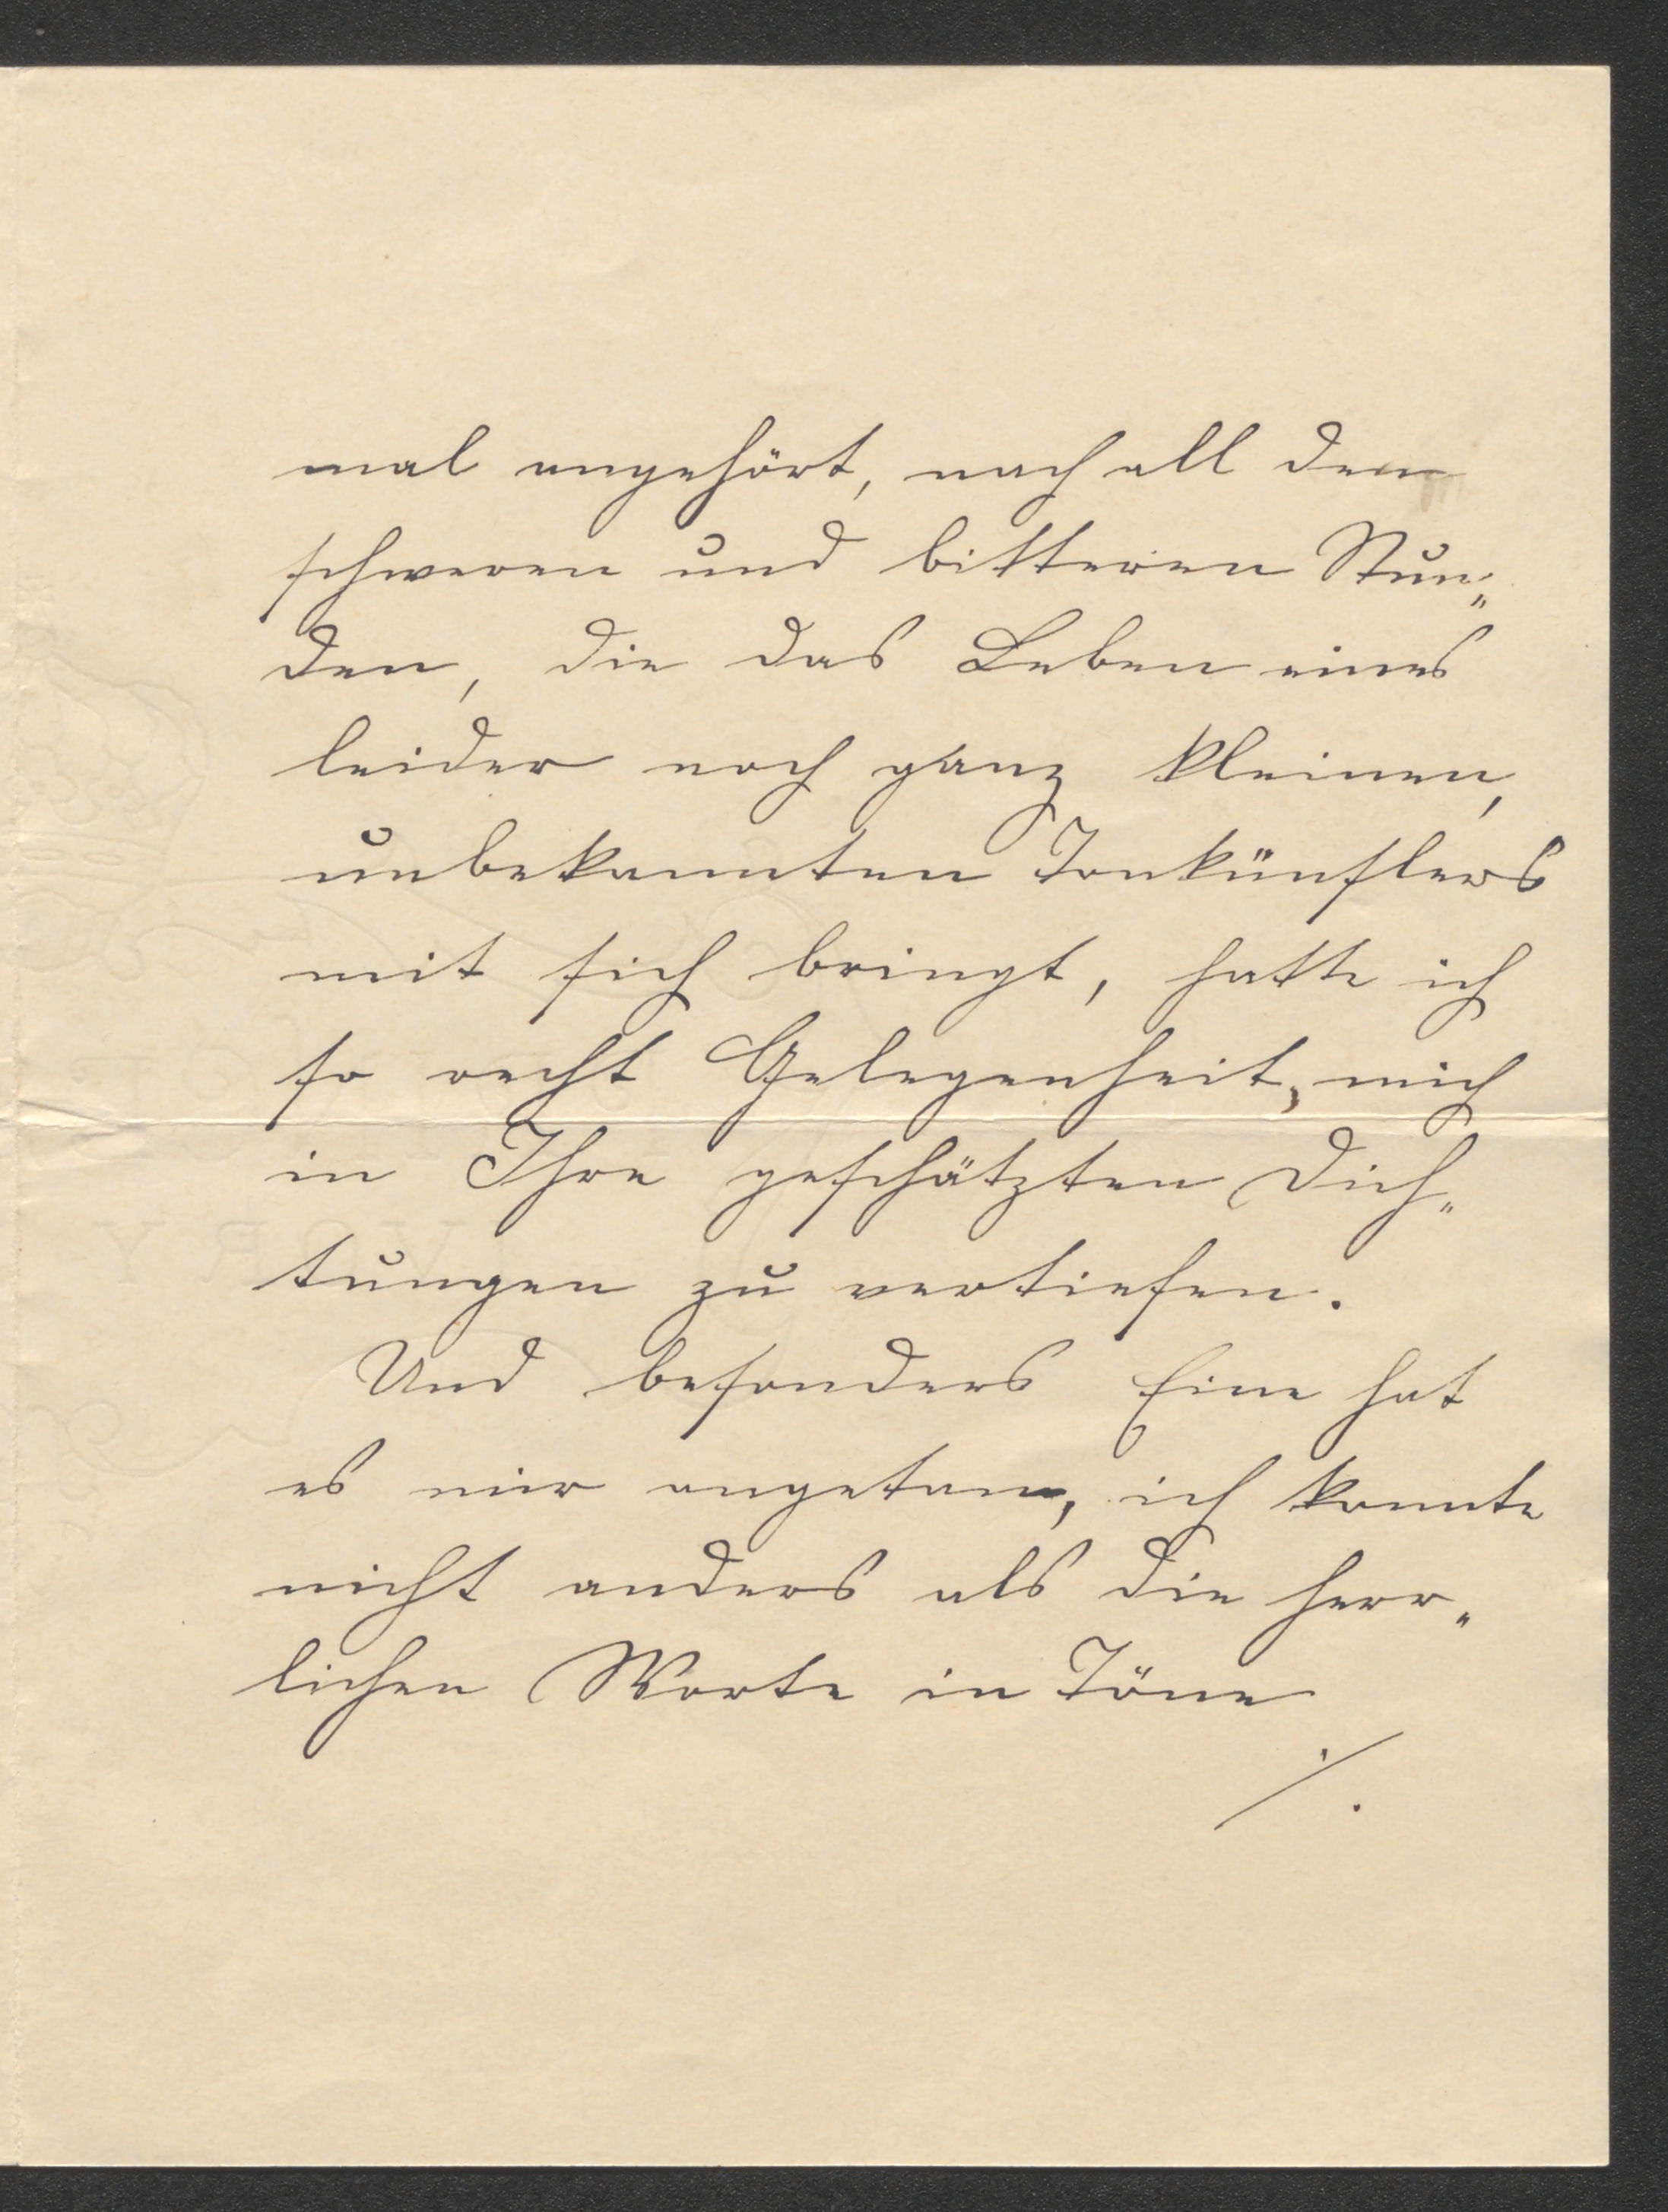 mal angehört, nach all den
schweren und bitteren Stun„
den, die das Leben eines
leider noch ganz kleinen,
unbekannten Tonkünstlers
mit sich bringt, hatte ich
so recht Gelegenheit, mich
in Ihre geschätzten Dich„
tungen zu vertiefen.
Und besonders Eine hat
es mir angetan, ich konnte
nicht anders als die herr„
lichen Worte in Töne
./.